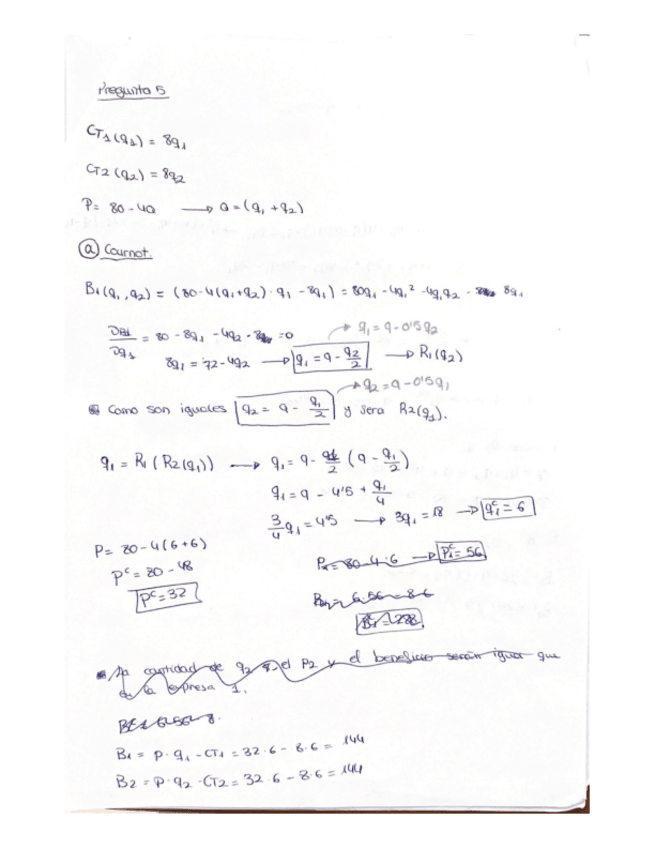 Pregunta 5
CT1(q1) = 8q1
CT2(q2) = 8q2
P = 80 - 4Q → Q = (q1 + q2)
a) Cournot.
B1(q1, q2) = (80-4(q1+q2) · q1 - 8q1) = 80q1 - 4q1² - 4q1q2 - 8q1
∂B1/∂q1 = 80 - 8q1 - 4q2 - 8 = 0 → q1 = 9 - 0'5q2
8q1 = 72 - 4q2 → q1 = 9 - q2/2 → R1(q2)
→ q2 = 9 - 0'5q1
Como son iguales q2 = 9 - q1/2 y será R2(q1).
q1 = R1(R2(q1)) → q1 = 9 - 1/2 (9 - q1/2)
q1 = 9 - 4'5 + q1/4
3/4 q1 = 4'5 → 3q1 = 18 → q1ᶜ = 6
P = 80 - 4(6+6)
P1 = 80 - 4·6 → P1ᶜ = 56
Pᶜ = 80 - 48
Pᶜ = 32
6·56 - 8·6
B1 = 288
La cantidad de q2 el P2 y el beneficio serán igual que
la empresa 1.
B1 = P · q1 - CT1 = 32·6 - 8·6 = 144
B2 = P · q2 - CT2 = 32·6 - 8·6 = 144